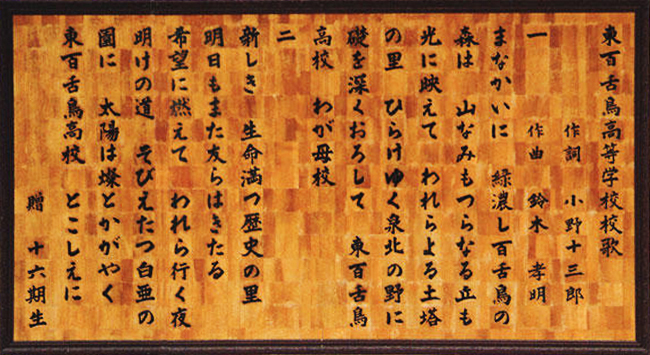 東百舌鳥高等学校校歌
作詞 小野十三郎
一 作曲 鈴木 孝明
まなかいに 緑濃し百舌鳥の
森は 山なみもつらなる丘も
光に映えて われらよる土塔
の里 ひらけゆく泉北の野に
礎を深くおろして 東百舌鳥
高校 わが母校
二
新しき 生命満つ歴史の里
明日もまた友らはきたる
希望に燃えて われら行く夜
明けの道 そびえたつ白亜の
園に 太陽は燦とかがやく
東百舌鳥高校 とこしえに
贈 十六期生